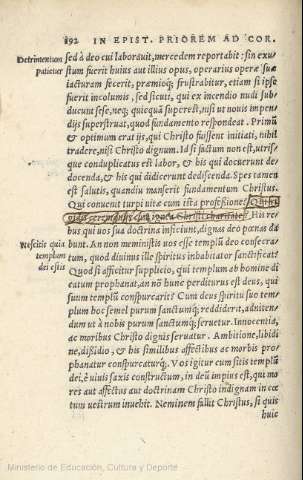 892 IN EPIST. PRIOREM AD COR.
Detrimentum sed à deo cui laborauit, mercedem reportabit: sin exu
patietur stum fuerit huius aut illius opus, operarius operæ suæ
iacturam fecerit, præmioq́; frustrabitur, etiam si ipse
fuerit incolumis, sed sicuti, qui ex incendio nudi sub-
ducunt sese, neq; quicquā superest, nisi ut nouis impen
dijs superstruat, quod fundamento respondeat. Primū
& optimum erat ijs, qui Christo fuissent initiati, nihil
tradere, nisi Christo dignum. Id si factum non est, utriſ
que conduplicatus est labor, & his qui docuerunt de-
docenda, & his qui didicerunt dediscenda. Spes tamen
est salutis, quandiu manserit fundamentum Christus.
Qui conuenit turpi uitæ cum ista professione?
charitate? His re
bus qui uos sua doctrina inficiunt, dignas deo pœnas dā
Nescitis quia bunt. An non meministis uos esse templū deo consecra-
templum tum, quod diuinus ille spiritus inhabitator sanctificat?
dei estis Quod si afficitur supplicio, qui templum ab homine di
catum prophanat, an nō hunc perditurus est deus, qui
suum templū conspurcarit? Cum deus spiritu suo tem-
plum hoc semel purum sanctumq́; reddiderit, adniten-
dum ut à nobis purum sanctumq́; seruetur. Innocentia,
ac moribus Christo dignis seruatur. Ambitione, libidi
ne, dissidio, & his similibus affectibus ac morbis pro-
phanatur conspurcaturq́;. Vos igitur cum sitis templū
dei, è uiuis saxis constructum, in deū impius est, qui mo
res aut affectus aut doctrinam Christo indignam in cœ
tum uestrum inuehit. Neminem fallit Christus, si quis
huic
Ministerio de Educación, Cultura y Deporte